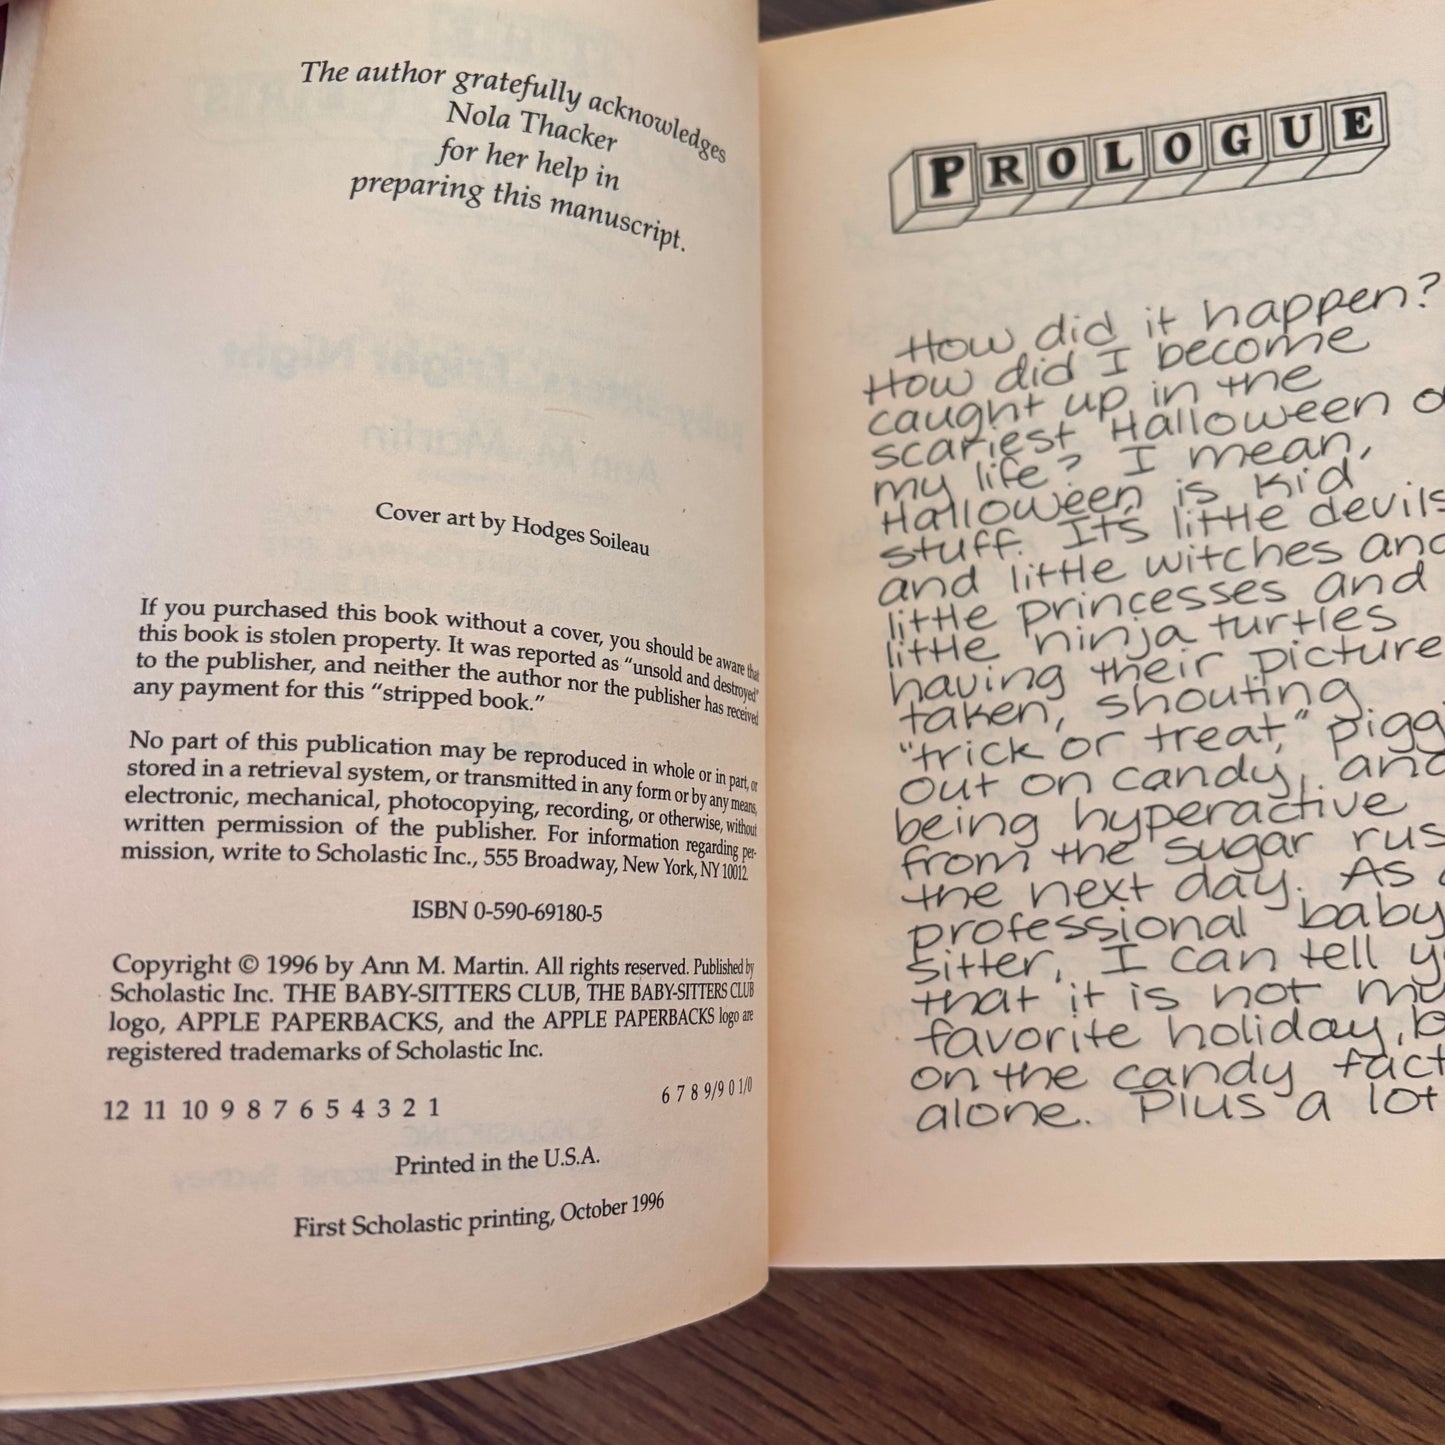 The author gratefully acknowledges
Nola Thacker
for her help in
preparing this manuscript.
Cover art by Hodges Soileau
If you purchased this book without a cover, you should be aware that
this book is stolen property. It was reported as “unsold and destroyed”
to the publisher, and neither the author nor the publisher has received
any payment for this “stripped book.”
No part of this publication may be reproduced in whole or in part, or
stored in a retrieval system, or transmitted in any form or by any means,
electronic, mechanical, photocopying, recording, or otherwise, without
written permission of the publisher. For information regarding per-
mission, write to Scholastic Inc., 555 Broadway, New York, NY 10012.
ISBN 0-590-69180-5
Copyright © 1996 by Ann M. Martin. All rights reserved. Published by
Scholastic Inc. THE BABY-SITTERS CLUB, THE BABY-SITTERS CLUB
logo, APPLE PAPERBACKS, and the APPLE PAPERBACKS logo are
registered trademarks of Scholastic Inc.
12 11 10 9 8 7 6 5 4 3 2 1 6 7 8 9/9 0 1/0
Printed in the U.S.A.
First Scholastic printing, October 1996
PROLOGUE
How did it happen?
How did I become
caught up in the
scariest Halloween
my life? I mean,
Halloween is kid
stuff. It's little devils
and little witches and
little princesses and
little ninja turtles
having their picture
taken, shouting
“trick or treat,”
out on candy, and
being hyperactive
from the sugar
the next day. As
professional baby
sitter, I can tell
that it is not
favorite holiday,
on the candy
alone. Plus a lot